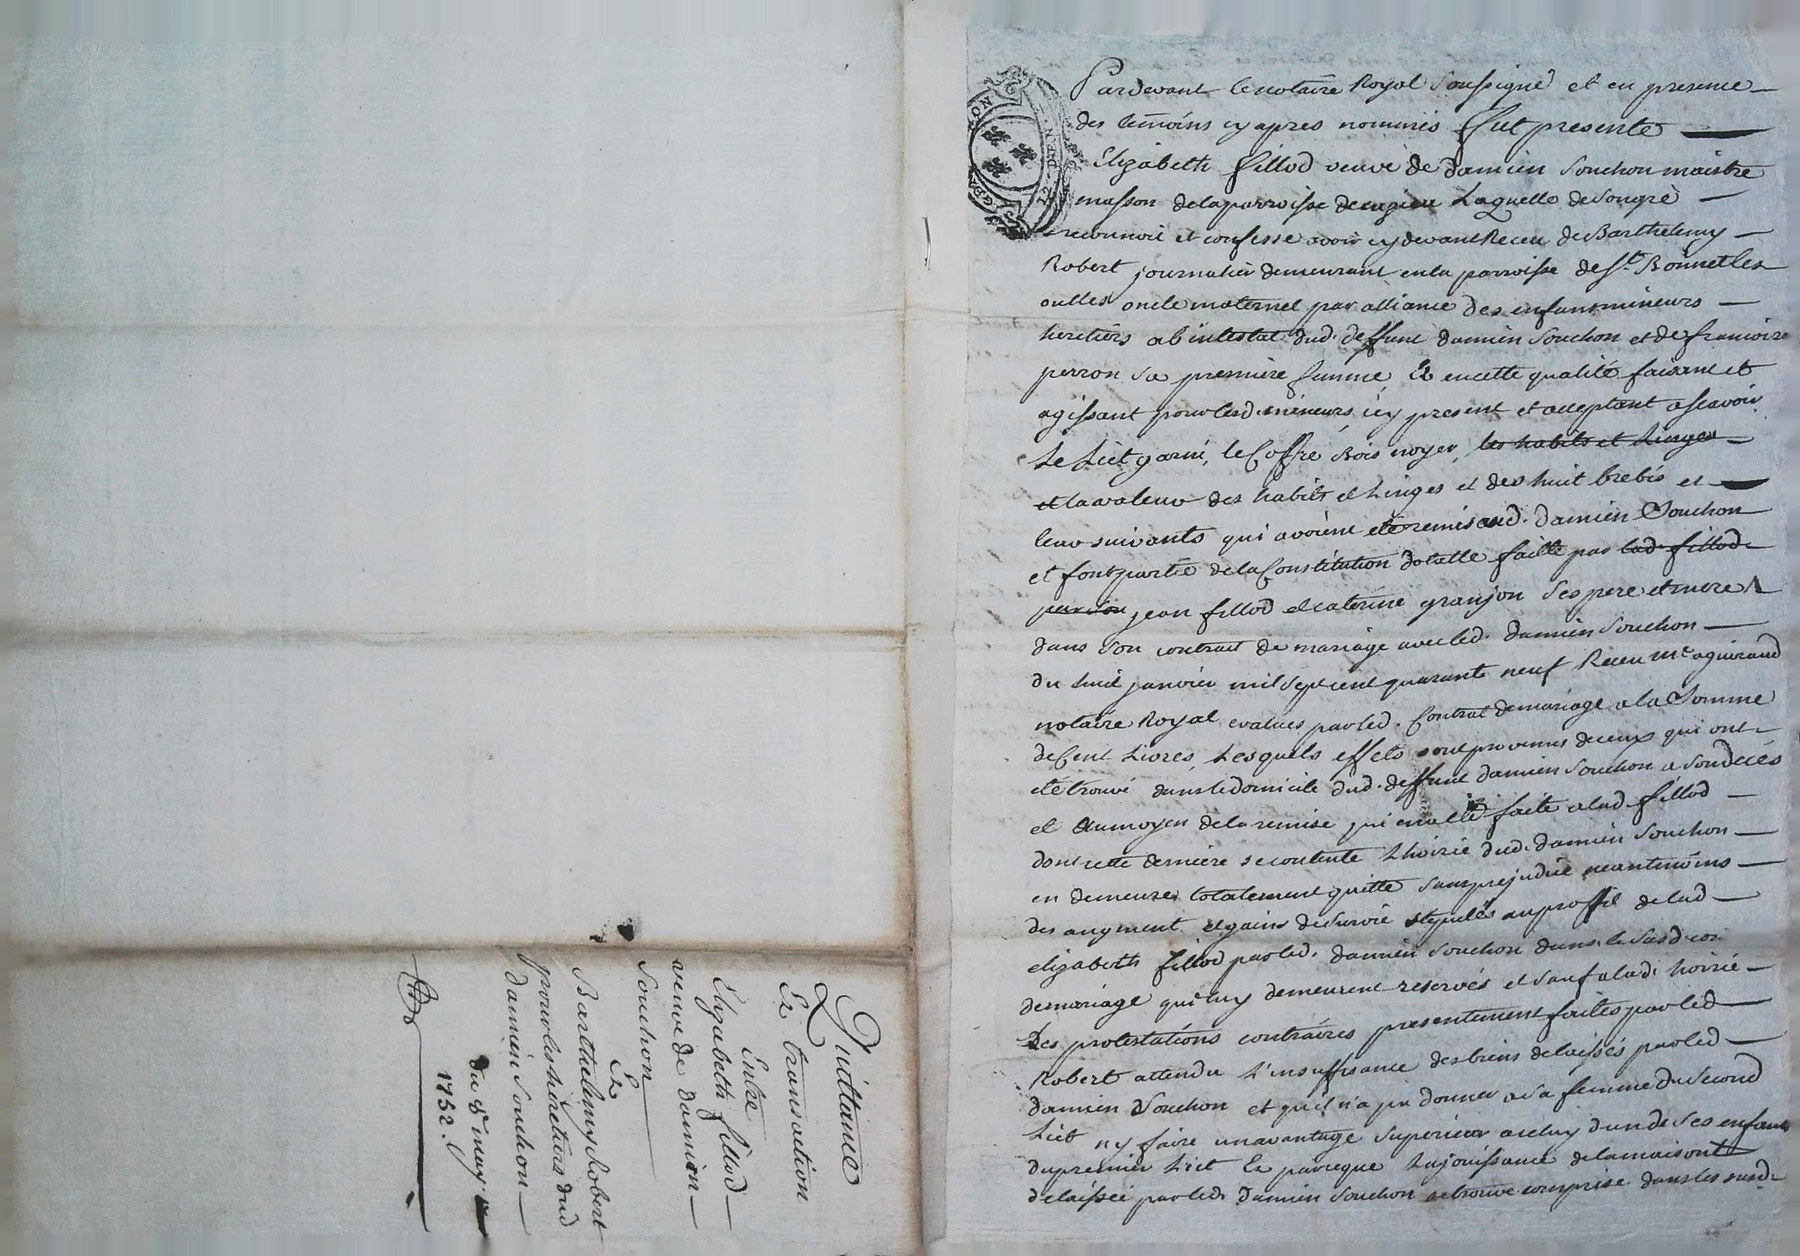 Quittance
Et transaction
Entre
Elizabeth fillod
veuve de damien
Souchon
Et
Barthelemy Robert
pour les heretiers dud
damien Souchon
du 8e may
1752.
Pardevant le notaire Royal Soussigné et en presence
des temoins cy apres nommés fut presente
Elizabeth fillod veuve de damien Souchon maistre
masson de la parroisse de Laquelle de Son gré
reconnoit et confesse avoir cy devant Receu de Barthelemy
Robert journalier demeurant en la parroisse de St. Bonnet les
oulles oncle maternel par alliance des enfans mineurs
heretiers ab intestat dud. deffunt damien Souchon et de francoise
perron Sa premiere femme, Et en cette qualité faisant et
agissant pour lesd. mineurs, icy present et acceptant a scavoir
Le Liet garni, le Coffre Bois noyer, les habits et Linges
et la valeur des habits et Linges et des huit brebis et
leur suivants qui avoient eté remis aud. damien Souchon
et font partie de la Constitution dotalle faitte par lad. fillod
jean fillod et caterine granjon Ses pere et mere
dans Son contrat de mariage avec led. damien Souchon
du huit janvier mil sept cent quarante neuf Receu Me aguiraud
notaire Royal evalués par led. Contrat de mariage a la Somme
de Cent Livres, Lesquels effets sont provenus de ceux qui ont
eté trouvé dans le domicile dud. deffunt damien Souchon a Son decés
et au moyen de la remise qui en a eté faite a lad. fillod
dont cette derniere se contente L'hoirie dud. damien Souchon
en demeure totalement quitte sans prejudice neantmoins
des augment et gains de Survie stipulés au proffit de lad
elizabeth fillod par led. damien Souchon dans le Susd. con
de mariage qui luy demeurent reservés et Sauf a lad. hoirie
Les protestations contraires presentement faites par led
Robert attendu L'insuffisance des biens delaissés par led
damien Souchon et qu'il n'a pu donner a Sa femme du Second
Liet ny faire un avantage superieur a celuy d'un de Ses enfans
du premier Liet Et parceque La jouissance de la maison
delaissée par led. damien Souchon se trouve comprise dans les susd